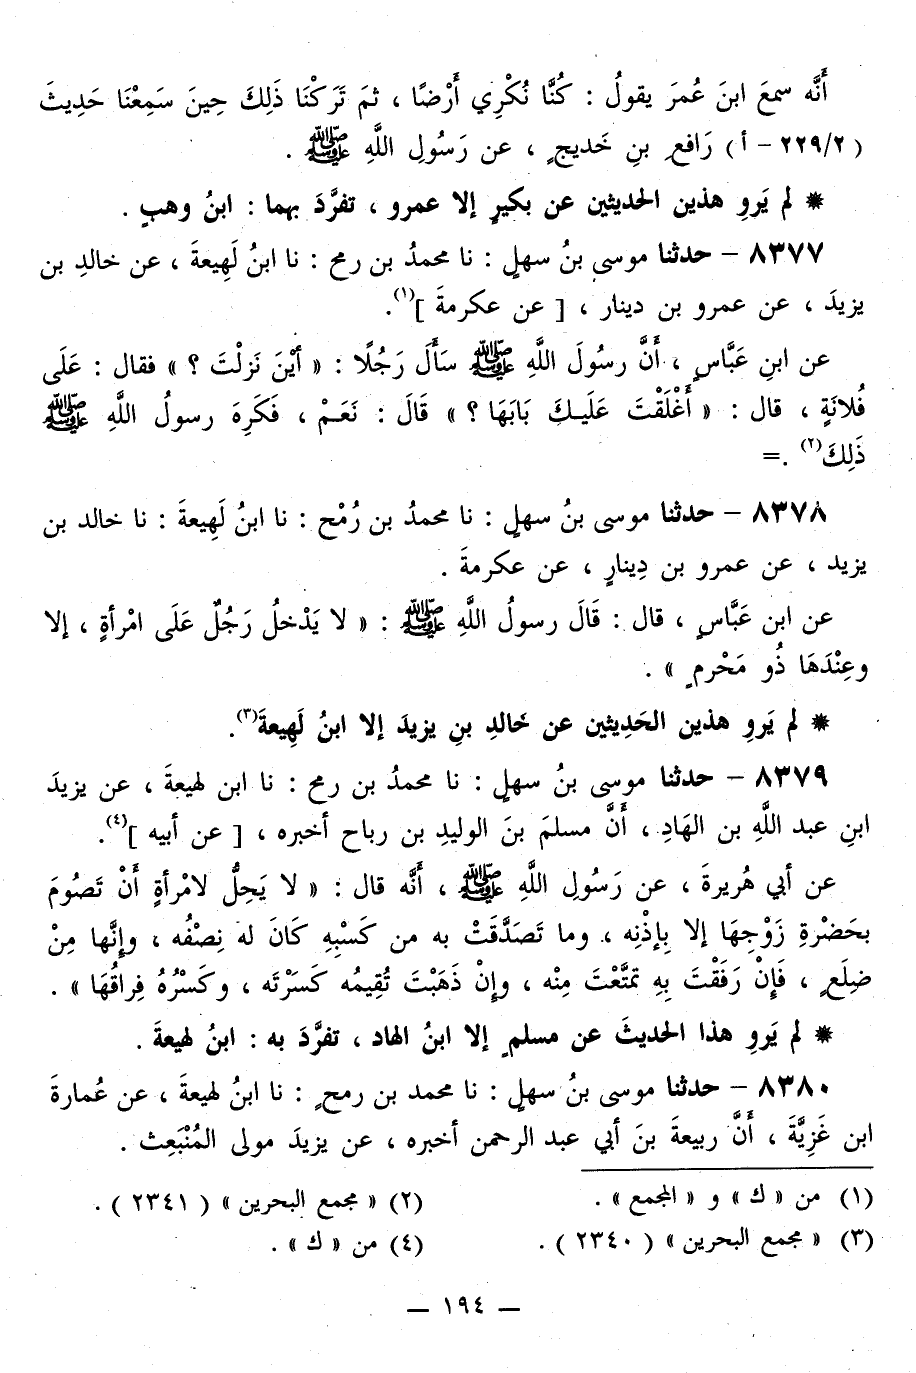 أَنَّه سمعَ ابنَ عُمرَ يقولُ : كُنَّا نُكْرِي أَرْضًا ، ثمَ تَرَكْنَا ذَلِكَ حِينَ سَمِعْنَا حَدِيثَ
( ٢٢٩/٢ - أ ) رَافعِ بنِ خَديجٍ ، عن رَسُولِ اللَّهِ ﷺ .
* لم يَروِ هذين الحديثين عن بكيرٍ إلا عمرو ، تفرَّدَ بهما : ابنُ وهبٍ .
٨٣٧٧ - حدثنا موسى بنُ سهلٍ : نا محمدُ بن رمح : نا ابنُ لَهِيعةَ ، عن خالدِ بن
يزيدَ ، عن عمرو بن دينار ، [ عن عكرمةَ ](١).
عن ابنِ عَبَّاسٍ ، أَنَّ رسُولَ اللَّهِ ﷺ سَأَلَ رَجُلًا : « أَيْنَ نَزلْتَ ؟ » فقال : عَلَى
فُلانَةٍ ، قال : « أَغْلَقْتَ عَلَيكَ بَابَهَا ؟ » قَالَ : نَعَمْ ، فَكَرِهَ رسولُ اللَّهِ ﷺ
ذَلِكَ(٢) .=
٨٣٧٨ - حدثنا موسى بنُ سهلٍ : نا محمدُ بن رُمْح : نا ابنُ لَهِيعةَ : نا خالد بن
يزيد ، عن عمرو بن دِينارٍ ، عن عكرمةَ .
عن ابن عَبَّاسٍ ، قال : قَالَ رسولُ اللَّهِ ﷺ : « لا يَدْخلُ رَجُلٌ عَلَى امْرأةٍ ، إلا
وعِنْدَهَا ذُو مَحْرمٍ » .
* لم يَروِ هذين الحَدِيثين عن خَالدِ بنِ يزيدَ إلا ابنُ لَهِيعةَ(٣).
٨٣٧٩ - حدثنا موسى بنُ سهلٍ : نا محمدُ بن رمح : نا ابن لهيعةَ ، عن يزيدَ
ابنِ عبد اللَّهِ بن الهَادِ ، أَنَّ مسلمَ بنَ الوليدِ بن رباح أخبره ، [ عن أبيه ](٤).
عن أبي هُريرةَ ، عن رَسُولِ اللَّهِ ﷺ ، أَنَّه قال : « لا يَحِلُّ لامْرأةٍ أَنْ تَصُومَ
بحَضْرةِ زَوْجِهَا إلا بِإذْنِه ، وما تَصَدَّقَتْ به من كَسْبِهِ كَانَ له نِصْفُه ، وإنَّها مِنْ
ضِلَعٍ ، فَإنْ رَفَقْتَ بِهِ تمتَّعْتَ مِنْه ، وإنْ ذَهَبْتَ تُقِيمُه كَسَرْتَه ، وكَسْرُهُ فِراقُهَا » .
* لم يَروِ هذا الحديثَ عن مسلمٍ إلا ابنُ الهاد ، تفرَّدَ به : ابنُ لهيعةَ .
٨٣٨٠ - حدثنا موسى بنُ سهلٍ : نا محمد بن رمحٍ : نا ابنُ لهيعةَ ، عن عُمارةَ
ابن غَزِيَّةَ ، أَنَّ ربيعةَ بنَ أبي عبد الرحمن أخبره ، عن يزيدَ مولى المُنْبَعِث .
(١) من « ك » و « المجمع » .
(٢) « مجمع البحرين » ( ٢٣٤١ ) .
(٣) « مجمع البحرين » ( ٢٣٤٠ ) .
(٤) من « ك » .
— ١٩٤ —